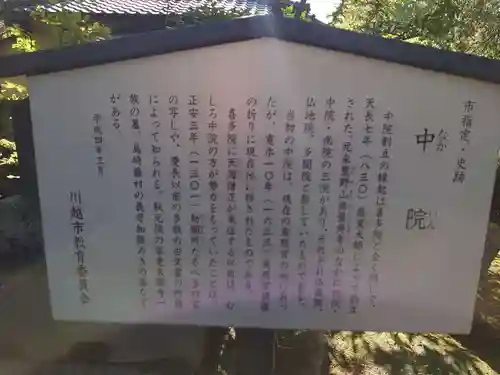 市指定・史跡
中院
なか いん
中院創立の縁起は喜多院と全く同じで、
天長七年(八三〇)慈覚大師によって創立
された。元来星野山無量寿寺のなかに北院・
中院・南院の三院があり、それぞれ仏蔵院、
仏地院、多聞院と称していたものである。
当初の中院は、現在の東照宮の地にあっ
たが、寛永一〇年(一六三三)東照宮建造
の折りに現在地に移されたものである。
喜多院に天海僧正が来往する以前は、む
しろ中院の方が勢力をもっていたことは、
正安三年(一三〇一)勅願所たるべきの綸
旨の写しや、慶長以前の多数の古文書の所蔵
によって知られる。秋元侯の家老太陽寺一
族の墓、島崎藤村の義母加藤みきの墓など
がある。
平成四年三月
川越市教育委員会